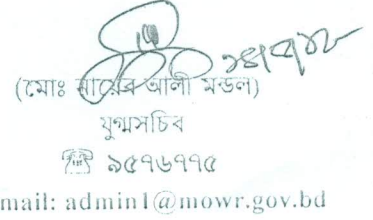 (মোঃ সায়েব আলী মন্ডল)
যুগ্মসচিব
☎ ৯৫৭৬৭৭৫
mail: admin1@mowr.gov.bd